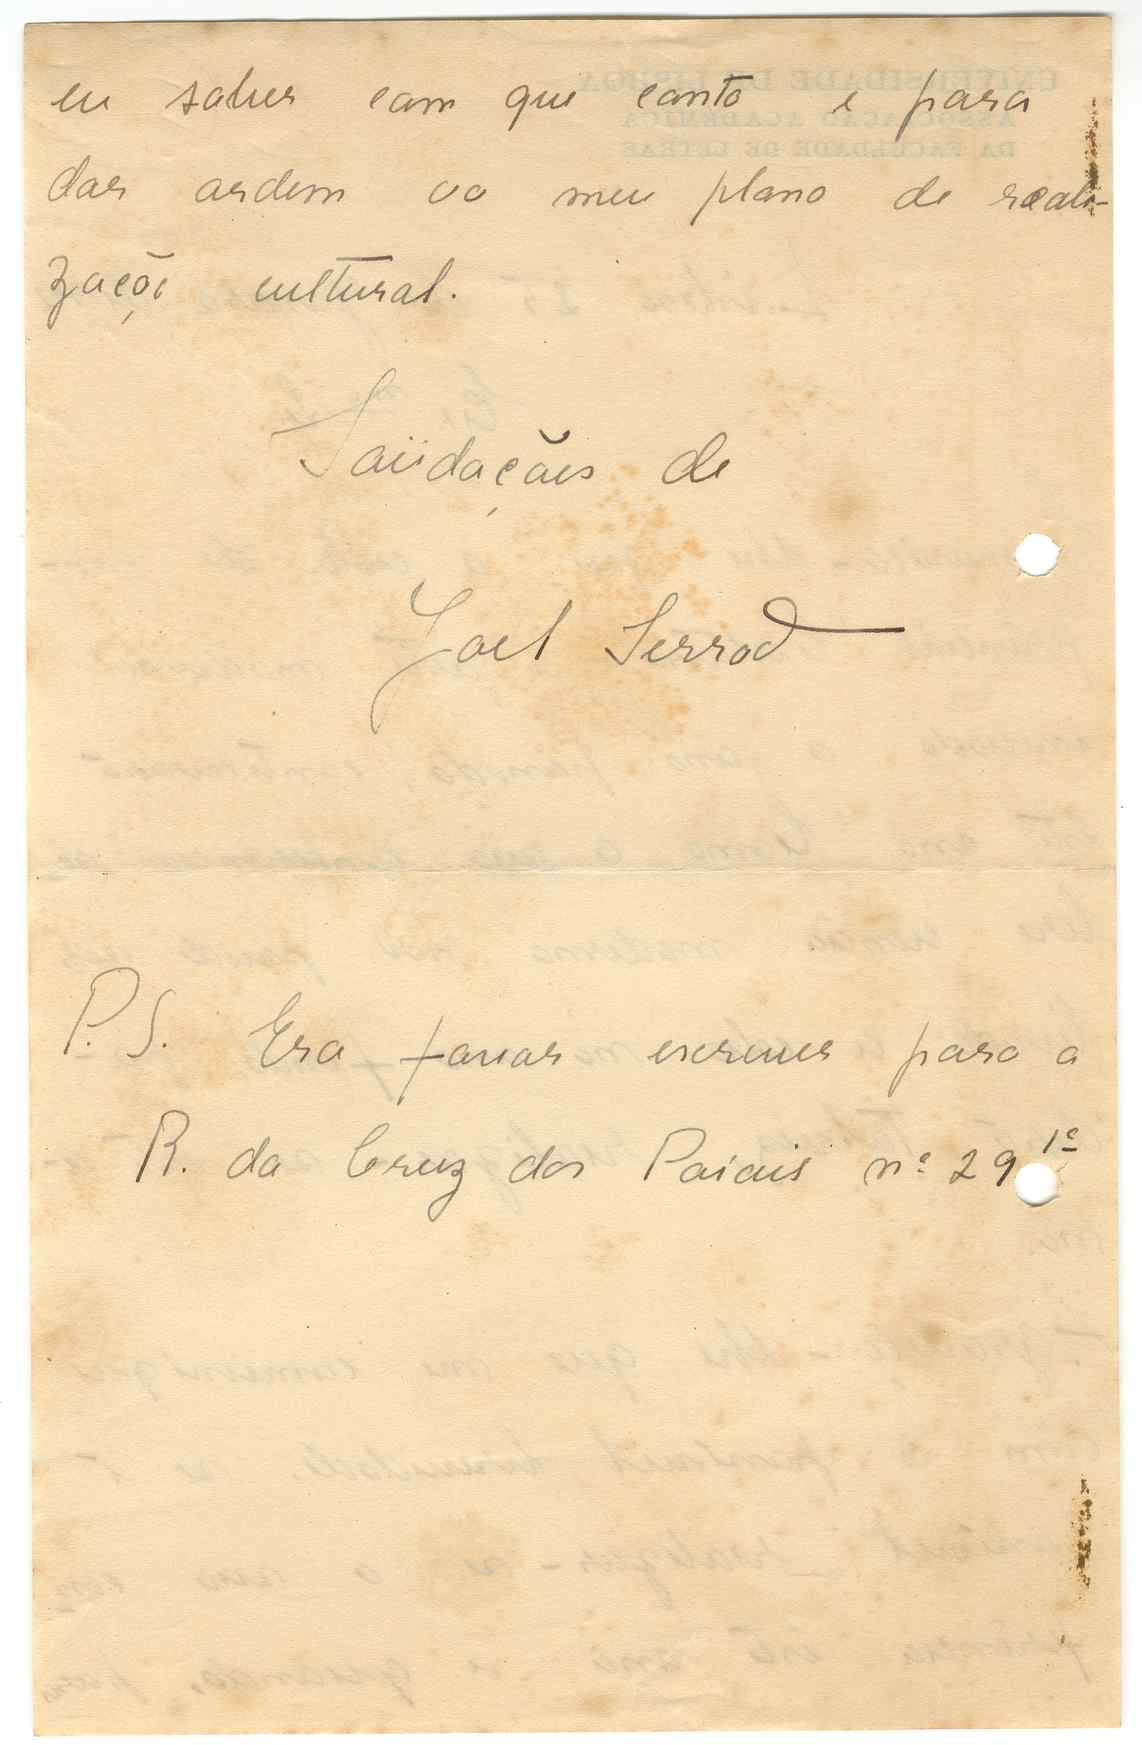 eu saber com que conto e para
dar ordem ao meu plano de reali-
zação cultural.
Saüdações de
Joel Serrão
P.S. Era favor escrever para a
R. da Cruz dos Poiais nº 29 1º